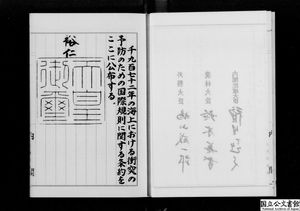 内閣総理大臣
農林大臣
外務大臣
千九百七十二年の海上における衝突の
予防のための国際規則に関する条約を
ここに公布する。
裕仁
天皇
御璽
国立公文書館
National Archives of Japan